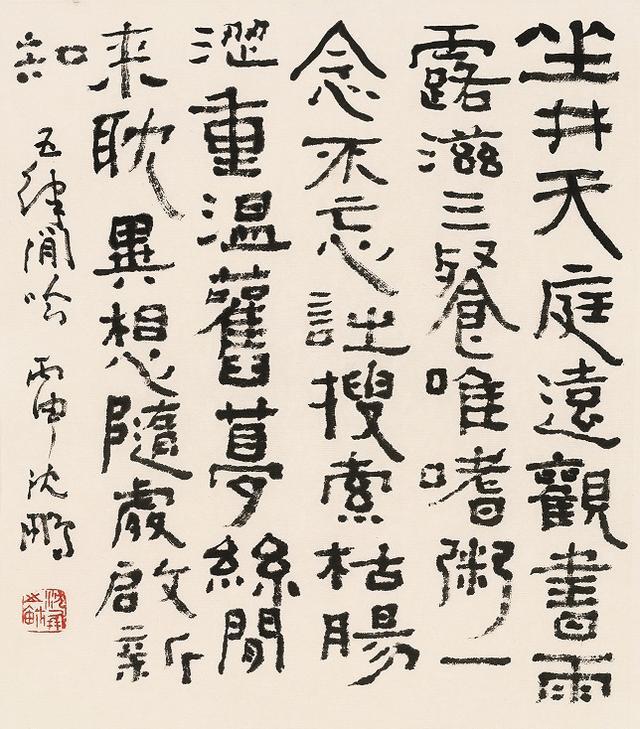 坐井天庭遠觀書雨
露滋三餐唯嗜粥一
念不忘詩搜索枯腸
澀重溫舊夢絲閒
来耽異想隨處啟新
知
五律閒吟 丙申 沈鵬